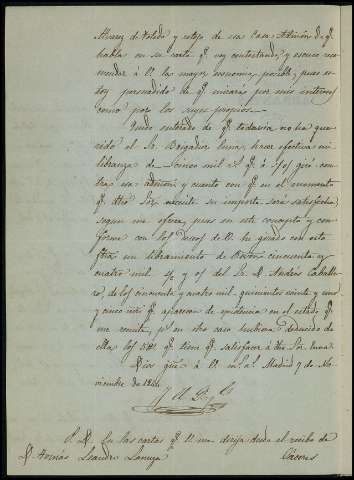 Alvarez de Toledo y cotejo de esa Casa Administ.n de q.e
habla en su carta q.e voy contestando, y escuso reco-
mendar á V. la mayor economia posible, pues es-
toy persuadido de q.e mirará por mis intereses
como por los suyos propios.
Quedo enterado de q.e todavia no ha que-
rido el Sr. Brigadier Luna, hacer efectiva mi
libranza de cinco mil r.s q.e á s/o giré con-
tra esa adm.on y cuento con q.e en el momento
q.e dho Sor. necesite su importe será satisfecha
segun me ofrece, pues en este concepto y con-
forme con los deseos de V. he girado con esta
fha un libramiento de cincuenta y
cuatro mil y of del Sr. D. Andrés Caballe-
ro, de los cincuenta y cuatro mil quinientos veinte y uno
y cinco q.e aparecen de existencia en el estado q.e
me remite, p.s en otro caso hubiera deducido de
ella los 5000 q.e tiene q.e satisfacer á dho Sor. Luna
Dios gue. á V. m. a. Madrid 7 de No-
viembre de
P. D. En las cartas q.e V. me dirija déme el recibo de
D. Tomás Leandro Lanuza Cáceres